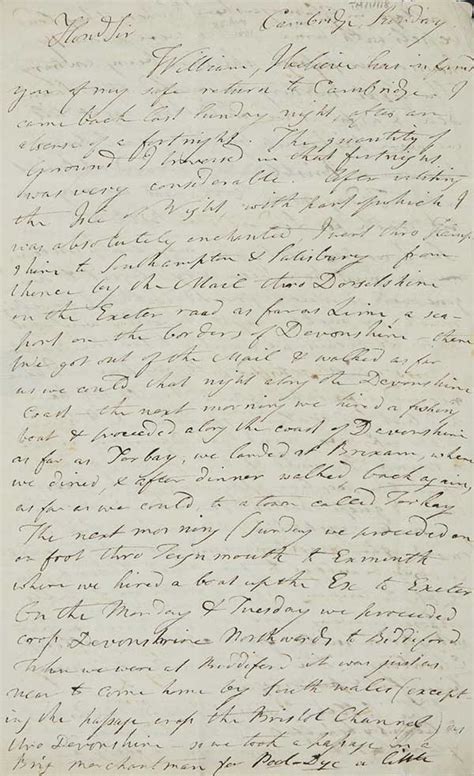 Cambridge Sunday
Hond Sir
William, I believe has inform'd
you of my safe return to Cambridge. I
came back last Sunday night, after an
absence of a fortnight. The quantity of
ground I traversed in that fortnight
was very considerable. After visiting
the Isle of Wight with part of which I
was absolutely enchanted I went thro' Hamp
shire to Southampton & Salisbury - from
thence by the Mail thro Dorsetshire
on the Exeter road as far as Lime, a sea-
port on the borders of Devonshire - there
we got out of the Mail & walked as far
as we could, that night along the Devonshire
coast - the next morning we hired a fishing
boat & proceeded along the coast of Devonshire
as far as Torbay, we landed at Brixam, where
we dined, & after dinner walked back again,
as far as we could to a town called Torkay
The next morning (Sunday we proceeded on
on foot thro Teignmouth to Exmouth
where we hired a boat up the Exe to Exeter
On the Monday & Tuesday we proceeded
cross Devonshire Northwards to Biddiford
When we were at Biddiford it was just as
near to come home by South Wales (except
ing the passage cross the Bristol Channel) as
thro Devonshire - so we took a passage in a
Brig merchantman for Pool-Dye a little